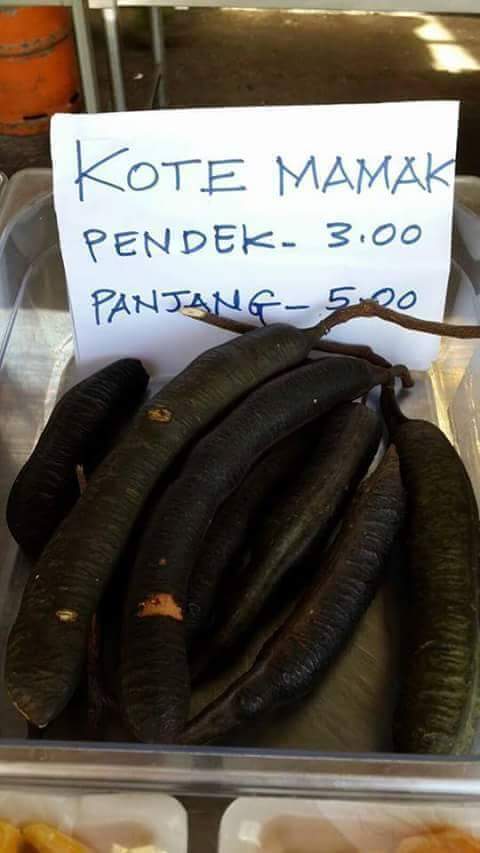 KOTE MAMAK
PENDEK- 3.00
PANJANG- 5.00